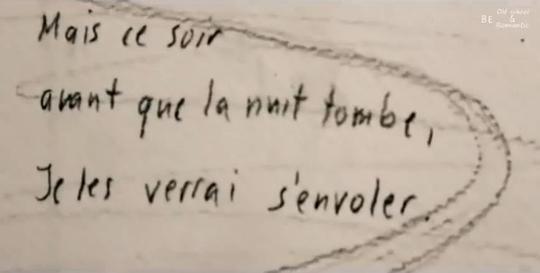 Mais ce soir
avant que la nuit tombe,
Je les verrai s'envoler.
BE Old school & Romantic